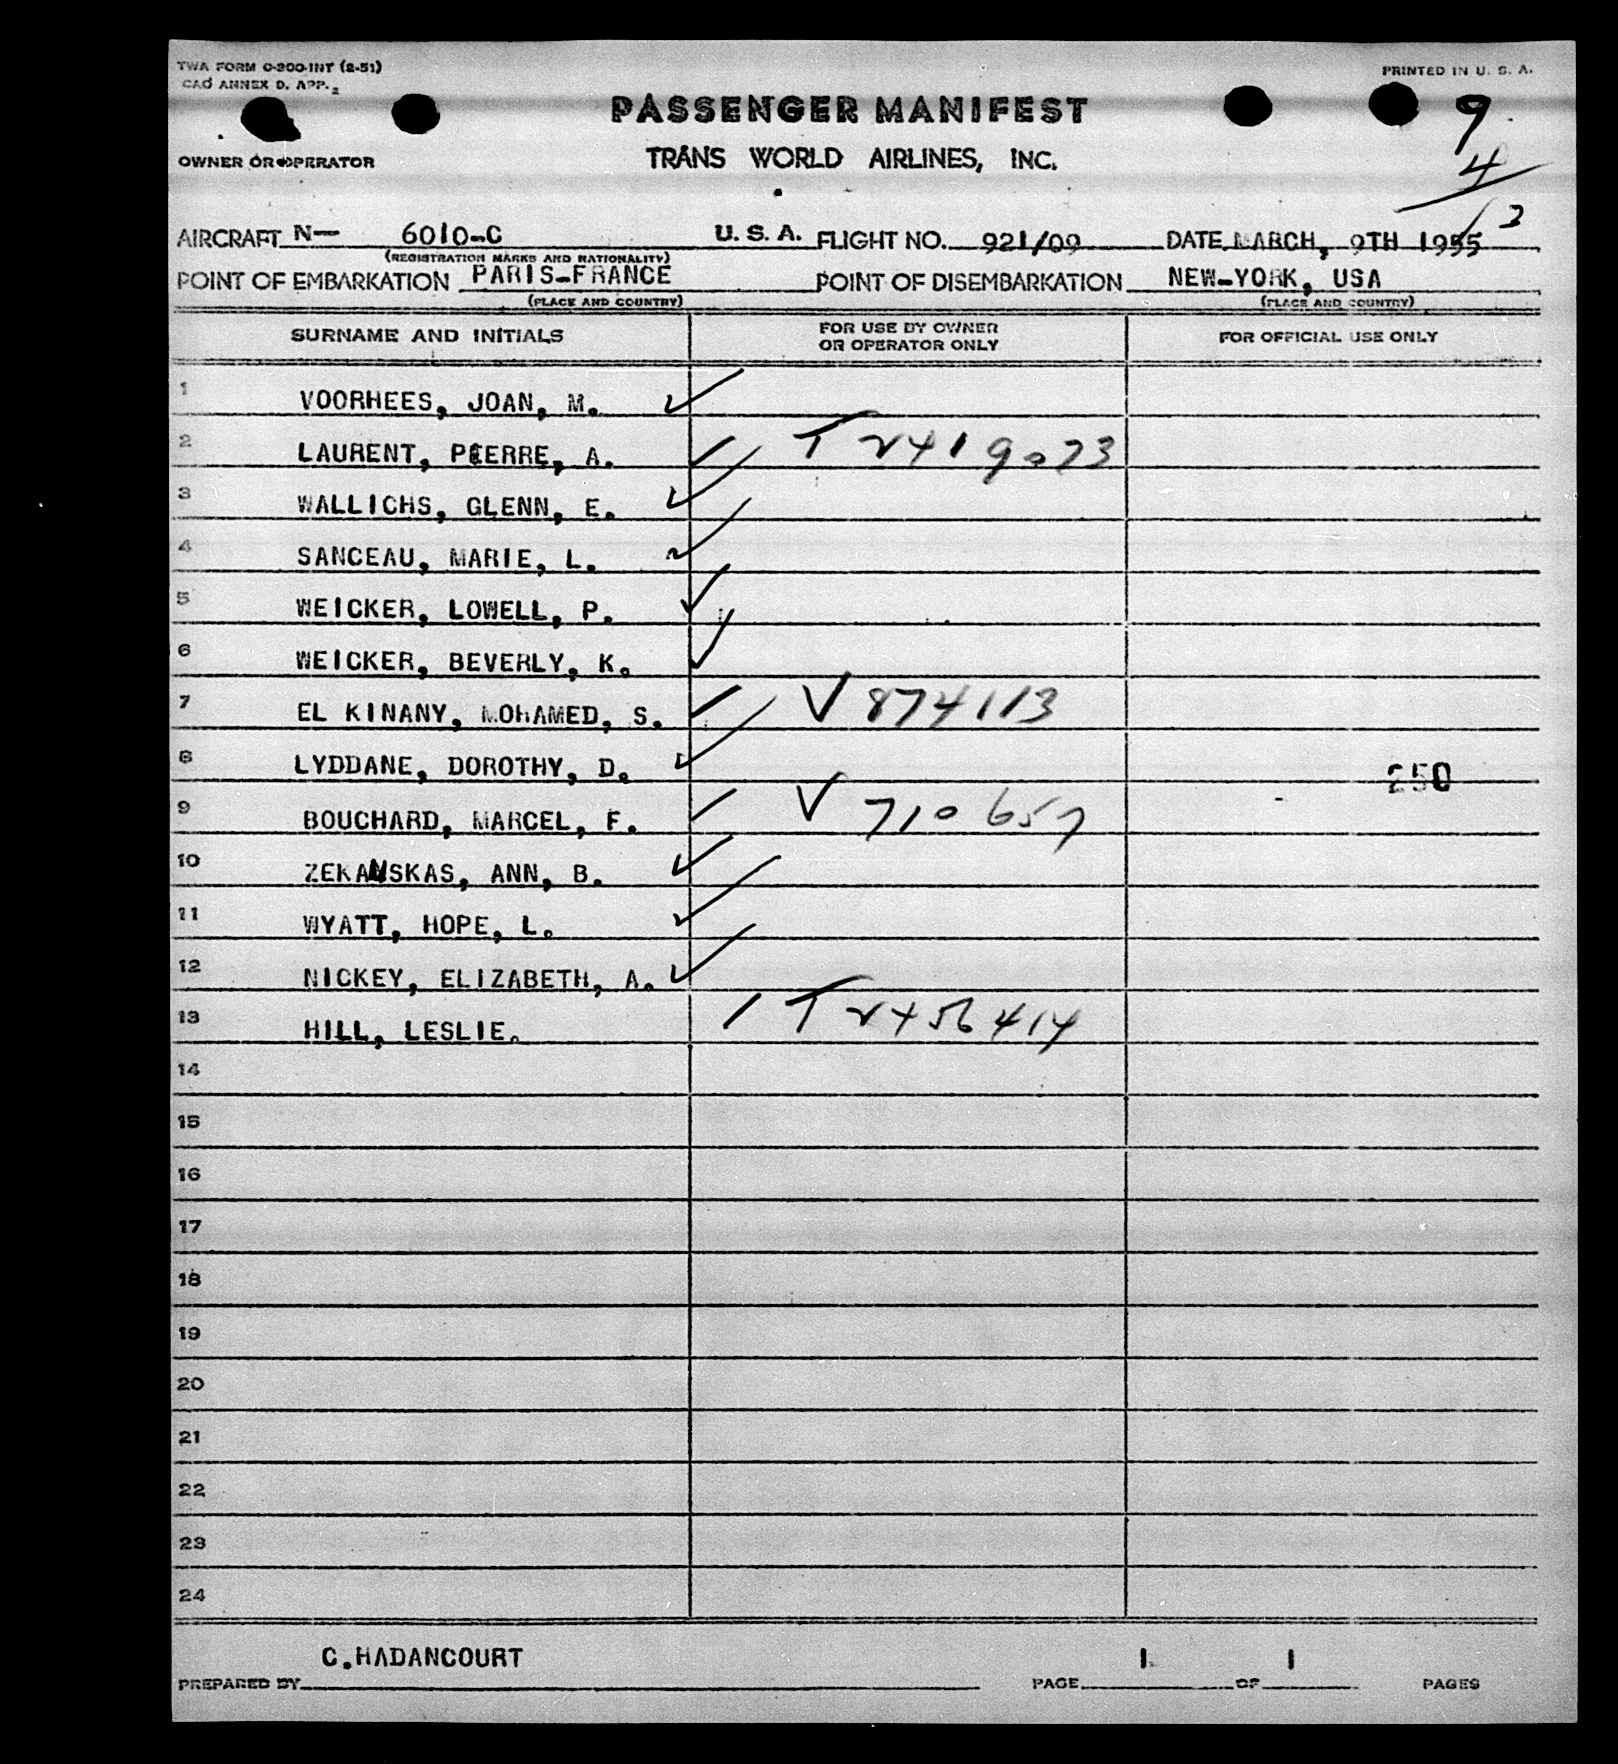 TWA FORM O-200-INT (2-51)
PRINTED IN U. S. A.
CAO ANNEX D. APP. 2
PASSENGER MANIFEST
9
OWNER OR OPERATOR
TRANS WORLD AIRLINES, INC.
4
13
AIRCRAFT N— 6010-C U. S. A. FLIGHT NO. 921/09 DATE MARCH, 9TH 1955
(REGISTRATION MARKS AND NATIONALITY)
POINT OF EMBARKATION PARIS-FRANCE POINT OF DISEMBARKATION NEW-YORK, USA
(PLACE AND COUNTRY) (PLACE AND COUNTRY)
SURNAME AND INITIALS FOR USE BY OWNER OR OPERATOR ONLY FOR OFFICIAL USE ONLY
1 VOORHEES, JOAN, M.
2 LAURENT, PIERRE, A. T 2419073
3 WALLICHS, GLENN, E.
4 SANCEAU, MARIE, L.
5 WEICKER, LOWELL, P.
6 WEICKER, BEVERLY, K.
7 EL KINANY, MOHAMED, S. V 874113
8 LYDDANE, DOROTHY, D. 250
9 BOUCHARD, MARCEL, F. V 710657
10 ZEKANSKAS, ANN, B.
11 WYATT, HOPE, L.
12 NICKEY, ELIZABETH, A.
13 HILL, LESLIE. T 2456414
14
15
16
17
18
19
20
21
22
23
24
C.HADANCOURT 1 1
PREPARED BY PAGE OF PAGES